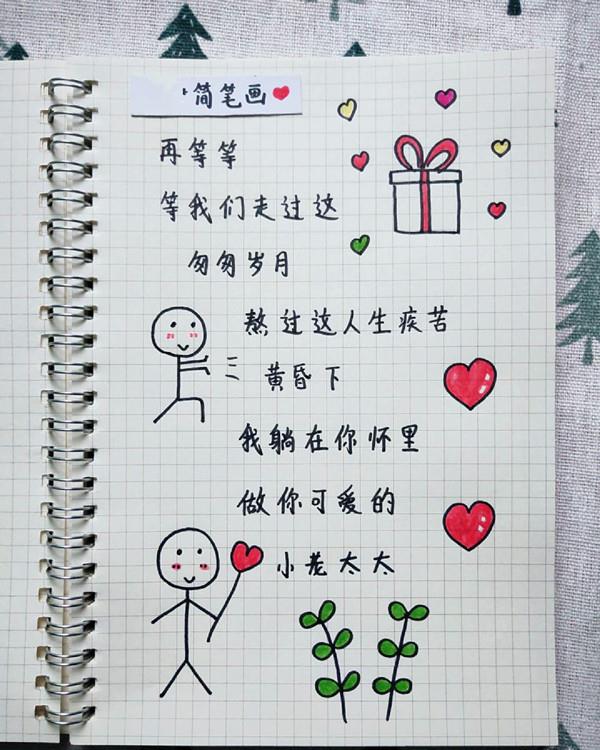 简笔画
再等等
等我们走过这
匆匆岁月
熬过这人生疾苦
黄昏下
我躺在你怀里
做你可爱的
小老太太